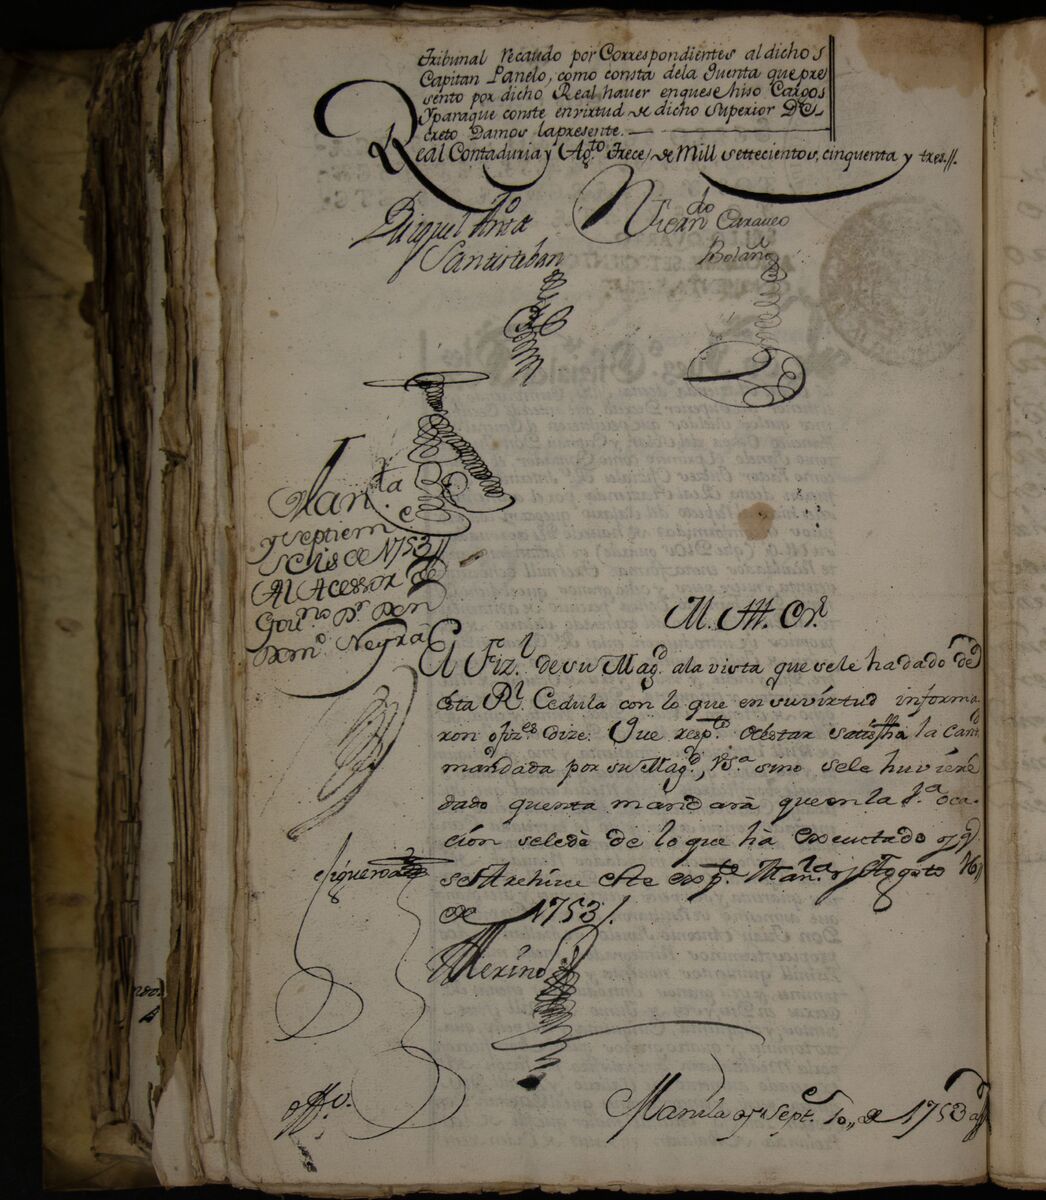 tribunal recaudo por Correspondientes al dicho
Capitan Panelo, como consta dela Quenta que pre
sento por dicho Real haver enquese hiso Cargos
Yparaque conste envirtud de dicho Superior De-
creto Damos lapresente.
Real Contaduria y Agto. trece, de Mill settecientos, cinquenta y tres.//.
Miguel Anto. de
Santisteban
Nican.do Caraveo
Bolaño
Man.ta
y septiem.e
seis de 1753//
Al Acessor de
Gou.no Dr. Don
Dom.o Negra
M. Ill. Sr.
El Fiz.l de su Mag.d ala vista que sele hadado de
esta Rl. Cedula con lo que en su virtud informa
ron ofiz.es dize: Que resp.to a estar satisfha la cant.d
mandada por su Mag.d, VSa. sino sele huviere
dado quenta mandarà que en la 1.a oca-
ción sele dè de lo que hà executado y q.e
se Archive este exp.te Man.la y Agosto 16,,
de 1753/.
Merino
Figueroa
Manila y Sept.e 10,, de 1753 a.s